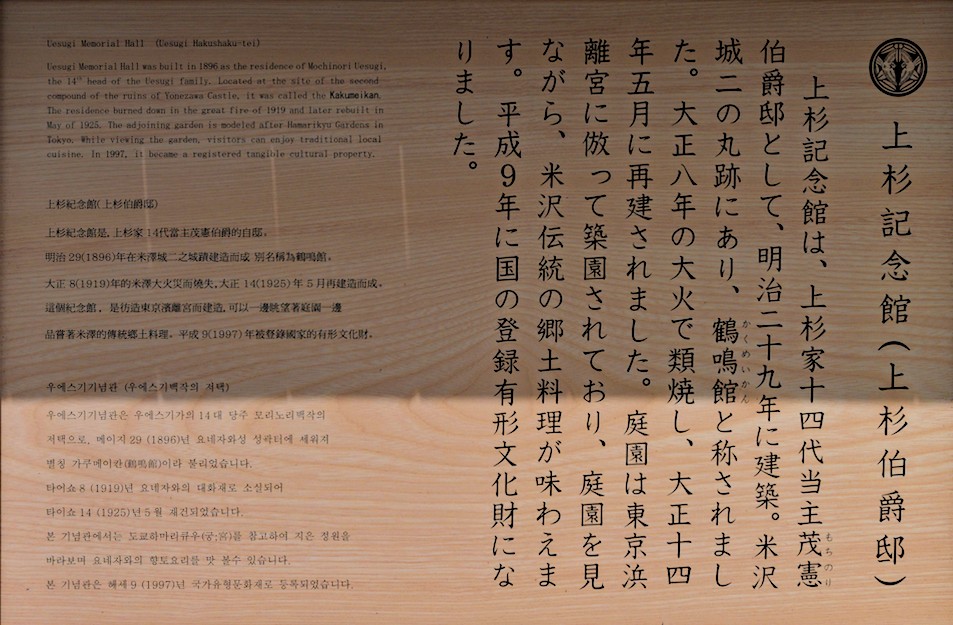 上杉記念館(上杉伯爵邸)
上杉記念館は、上杉家十四代当主茂憲
もちのり
伯爵邸として、明治二十九年に建築。米沢
城二の丸跡にあり、鶴鳴館と称されまし
かくめいかん
た。大正八年の大火で類焼し、大正十四
年五月に再建されました。庭園は東京浜
離宮に倣って築園されており、庭園を見
ながら、米沢伝統の郷土料理が味わえま
す。平成9年に国の登録有形文化財にな
りました。
Uesugi Memorial Hall (Uesugi Hakushaku-tei)
Uesugi Memorial Hall was built in 1896 as the residence of Mochinori Uesugi,
the 14th head of the Uesugi family. Located at the site of the second
compound of the ruins of Yonezawa Castle, it was called the Kakumeikan.
The residence burned down in the great fire of 1919 and later rebuilt in
May of 1925. The adjoining garden is modeled after Hamarikyu Gardens in
Tokyo. While viewing the garden, visitors can enjoy traditional local
cuisine. In 1997, it became a registered tangible cultural property.
上杉紀念館(上杉伯爵邸)
上杉紀念館是,上杉家14代當主茂憲伯爵的自邸。
明治29(1896)年在米澤城二之城蹟建造而成 別名稱為鶴鳴館。
大正8(1919)年的米澤大火災而燒失,大正14(1925)年5月再建造而成。
這個紀念館,是彷造東京濱離宮而建造,可以一邊眺望著庭園一邊
品嘗著米澤的傳統鄉土料理。平成9(1997)年被登錄國家的有形文化財。
우에스기기념관 (우에스기백작의 저택)
우에스기기념관은 우에스기가의 14대 당주 모리노리백작의
저택으로, 메이지 29 (1896)년 요네자와성 성곽터에 세워져
별칭 가쿠메이칸(鶴鳴館)이라 불리었습니다.
타이쇼 8 (1919)년 요네자와의 대화재로 소실되어
타이쇼 14 (1925)년 5월 재건되었습니다.
본 기념관에서는 도쿄하마리큐우(궁;宮)를 참고하여 지은 정원을
바라보며 요네자와의 향토요리를 맛 볼수 있습니다.
본 기념관은 헤세 9 (1997)년 국가유형문화재로 등록되었습니다.